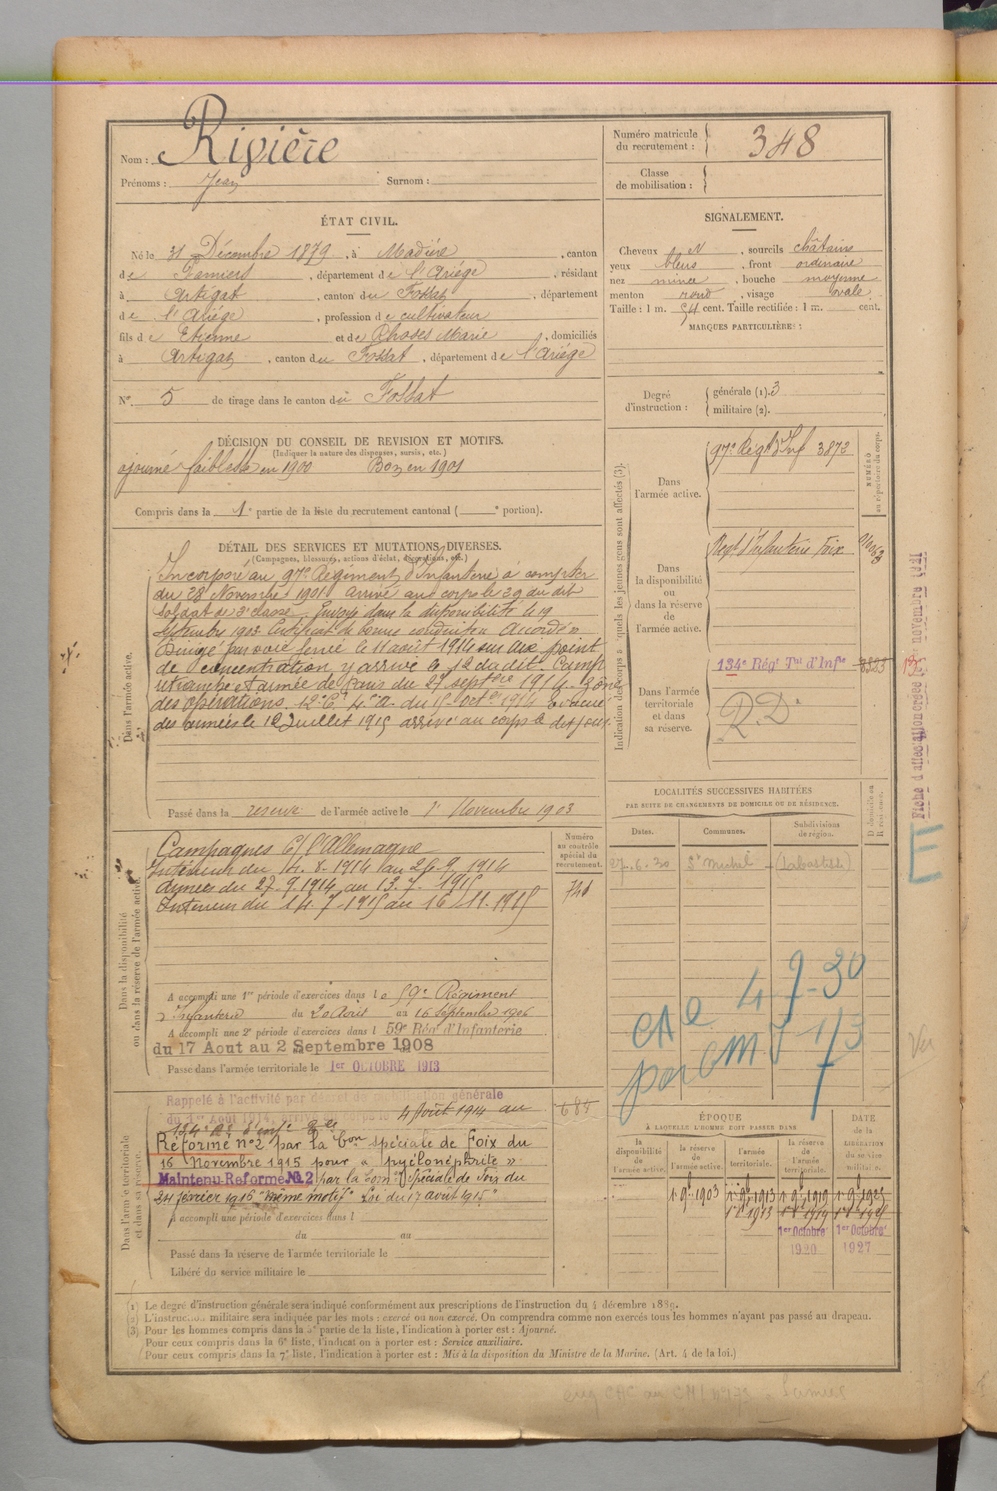 Nom : Rivière
Prénoms : Jean Surnom :
Numéro matricule du recrutement : 348
Classe de mobilisation :
ÉTAT CIVIL.
Né le 31 Décembre 1879, à Madière, canton
de Pamiers, département de l'Ariège, résidant
à Artigat, canton du Fossat, département
de l'Ariège, profession de cultivateur
fils de Etienne et de Rhodes Marie, domiciliés
à Artigat, canton du Fossat, département de l'Ariège
N° 5 de tirage dans le canton du Fossat
DÉCISION DU CONSEIL DE REVISION ET MOTIFS.
(Indiquer la nature des dispenses, sursis, etc.)
ajourné faiblesse en 1900 Bon en 1901
Compris dans la 1e partie de la liste du recrutement cantonal ( e portion).
SIGNALEMENT.
Cheveux N, sourcils châtains
yeux bleus, front ordinaire
nez mince, bouche moyenne
menton rond, visage ovale
Taille : 1 m. 54 cent. Taille rectifiée : 1 m. cent.
MARQUES PARTICULIÈRES :
Degré d'instruction : générale (1). 3
militaire (2).
DÉTAIL DES SERVICES ET MUTATIONS DIVERSES.
(Campagnes, blessures, actions d'éclat, décorations, etc.)
Dans l'armée active.
Incorporé au 97e Régiment d'Infanterie à compter
du 28 Novembre 1901 arrivé au corps le 29 du dit
Soldat de 2e classe Envoyé dans la disponibilité le 19
Septembre 1903. Certificat de bonne conduite Accordé
par voie ferrée le 11 août 1914 sur point
de concentration y arrivé le 12 du dit. Camp
retranché et armée de Paris du 27 septbre 1914. Zône
des opérations. 12e Cie 4e a. du 15 octbre 1914 Evacué
des armées le 12 Juillet 1915 arrivé au corps le dit jour
Passé dans la réserve de l'armée active le 1er Novembre 1903
Indication des corps auxquels les jeunes gens sont affectés (3).
NUMÉRO au répertoire du corps.
Dans l'armée active.
97e Régt d'Inf 3872
Dans la disponibilité ou dans la réserve de l'armée active.
Regt d'Infanterie Foix
Dans l'armée territoriale et dans sa réserve.
134e Régt Tal d'Infie
RDn
LOCALITÉS SUCCESSIVES HABITÉES
PAR SUITE DE CHANGEMENTS DE DOMICILE OU DE RÉSIDENCE.
Dates. Communes. Subdivisions de région. D domicile ou R résidence.
27.6.30 St Michel (Labastide)
Dans la disponibilité ou dans la réserve de l'armée active.
Numéro au contrôle spécial du recrutement.
Campagnes C/ l'Allemagne
Intérieur du 14.8.1914 au 26.9.1914
Armées du 27.9.1914 au 13.7.1915
Intérieur du 14.7.1915 au 16.11.1915
A accompli une 1re période d'exercices dans le 59e Régiment
d'Infanterie du 20 Août au 16 Septembre 1906
A accompli une 2e période d'exercices dans l 59e Régt d'Infanterie
du 17 Aout au 2 Septembre 1908
Passé dans l'armée territoriale le 1er OCTOBRE 1913
Dans l'armée territoriale et dans sa réserve.
Rappelé à l'activité par décret de mobilisation générale
du 1er Août 1914, arrivé au corps le 4 Août 1914 au
685
Réformé n°2 par la Con spéciale de Foix du
16 Novembre 1915 pour « pyélonéphrite »
Maintenu Réformé No 2 par la Com. Spéciale de Foix du
24 février 1916 "même motif" Loi du 17 août 1915"
A accompli une période d'exercices dans l
du au
Passé dans la réserve de l'armée territoriale le
Libéré du service militaire le
ÉPOQUE
À LAQUELLE L'HOMME DOIT PASSER DANS
la disponibilité de l'armée active. la réserve de l'armée active. l'armée territoriale. la réserve de l'armée territoriale.
DATE de la LIBÉRATION du service militaire.
1er 9bre 1903 1er 9bre 1913 1er 9bre 1919 1er 9bre 1925
1er Octobre 1920 1er Octobre 1927
(1) Le degré d'instruction générale sera indiqué conformément aux prescriptions de l'instruction du 4 décembre 1889.
(2) L'instruction militaire sera indiquée par les mots : exercé ou non exercé. On comprendra comme non exercés tous les hommes n'ayant pas passé au drapeau.
(3) Pour les hommes compris dans la 5e partie de la liste, l'indication à porter est : Ajourné.
Pour ceux compris dans la 6e liste, l'indication à porter est : Service auxiliaire.
Pour ceux compris dans la 7e liste, l'indication à porter est : Mis à la disposition du Ministre de la Marine. (Art. 4 de la loi.)